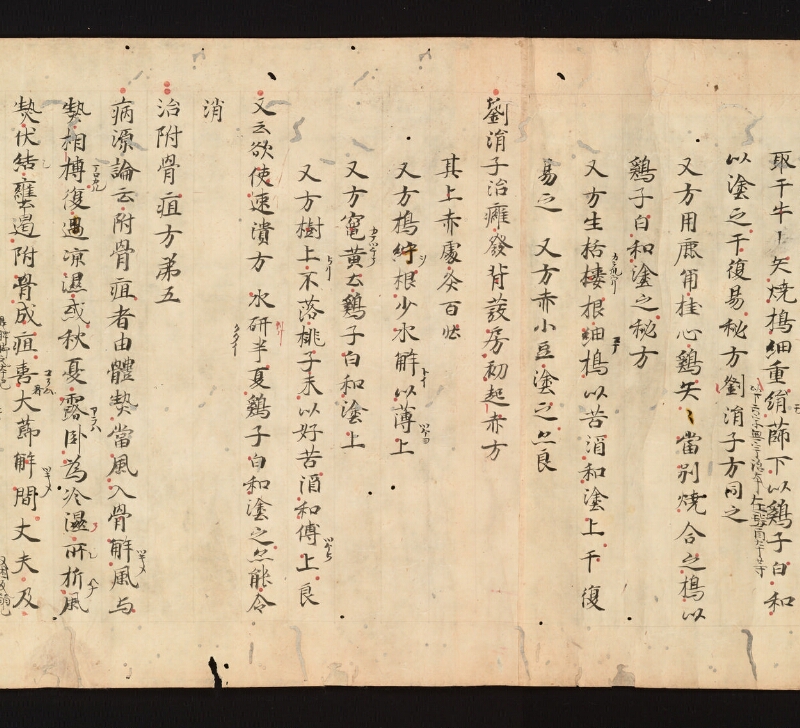 取干牛屎燒搗細重絹篩下以鷄子白和
以塗之干復易秘方劉涓子方同之
又方用鹿角桂心鷄矢當別燒合之搗以
鷄子白和塗之秘方
又方生栝樓根細搗以苦酒和塗上干復
易之 又方赤小豆塗之亦良
劉涓子治癰發背發房初起赤方
其上赤處灸百壯
又方搗紵根少水解以薄上
又方竈黄土鷄子白和塗上
又方樹上不落桃子末以好苦酒和傅上良
又云欲使速潰方 水研半夏鷄子白和塗之亦能令
消
治附骨疽方第五
病源論云附骨疽者由體熱當風入骨解風与
熱相搏復遇凉濕或秋夏露卧為冷濕所折風
熱伏結壅遏附骨成疽喜大節解間丈夫及